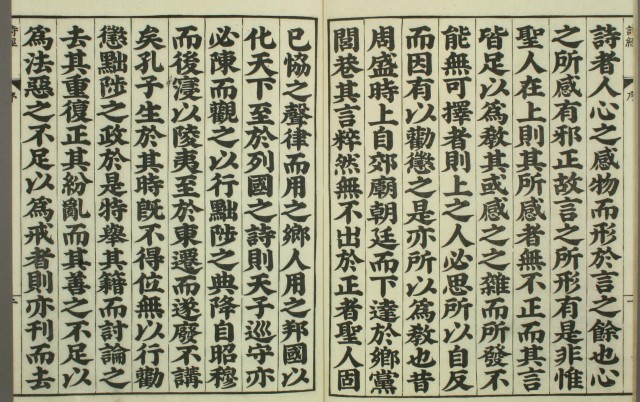 詩者人心之感物而形於言之餘也心
之所感有邪正故言之所形有是非惟
聖人在上則其所感者無不正而其言
皆足以為敎其或感之之雜而所發不
能無可擇者則上之人必思所以自反
而因有以勸懲之是亦所以為敎也昔
周盛時上自郊廟朝廷而下達於鄉黨
閭巷其言粹然無不出於正者聖人固
已恊之聲律而用之鄉人用之邦國以
化天下至於列國之詩則天子巡守亦
必陳而觀之以行黜陟之典降自昭穆
而後寖以陵夷至於東遷而遂廢不講
矣孔子生於其時旣不得位無以行勸
懲黜陟之政於是特舉其籍而討論之
去其重復正其紛亂而其善之不足以
為法惡之不足以為戒者則亦刊而去